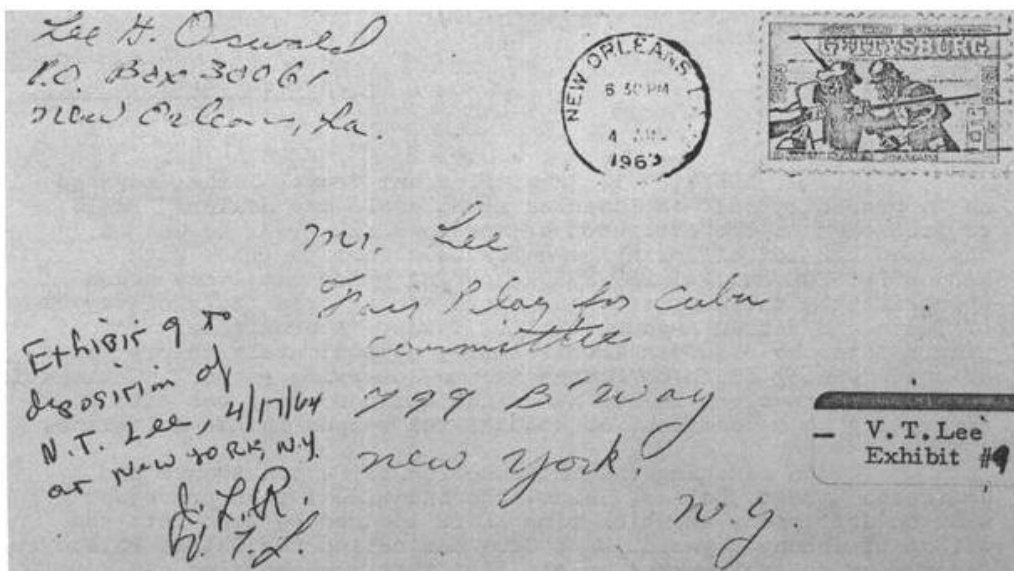 Lee H. Oswald
P.O. Box 30061
New Orleans, La.
NEW ORLEANS
6 30 PM
4
1963
GETTYSBURG
Mr. Lee
Fair Play for Cuba
Committee
799 B'Way
New York,
N.Y.
Exhibit 9 to
deposition of
V.T. Lee, 4/17/64
at New York, N.Y.
J.L.R.
V.T.L.
V.T.Lee
Exhibit #9